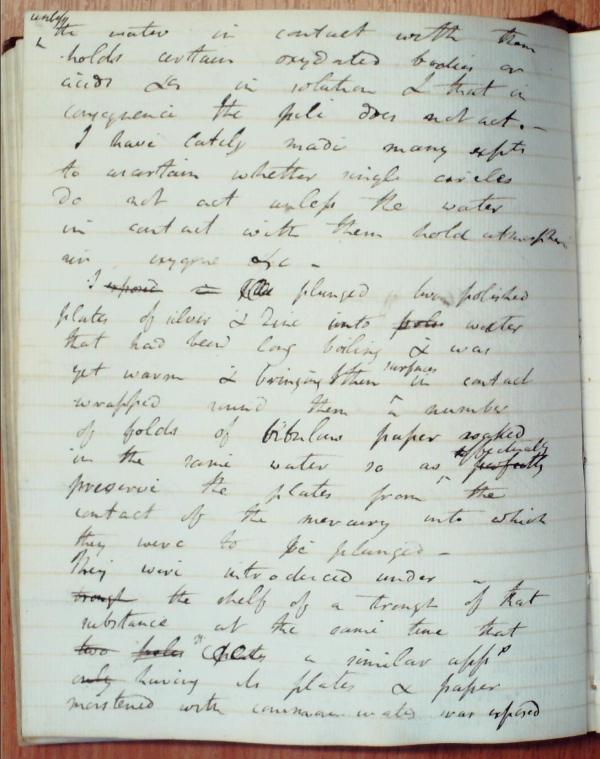 unless
the water in contact with them
holds certain oxydated bodies or
acids &c in solution & that in
consequence the pile does not act. –
I have lately made many expts
to ascertain whether single circles
do not act unless the water
in contact with them hold atmospheric
air oxygene &c –
I exposed a plunged two polished
plates of silver & zinc into poles water
that had been long boiling & was
yet warm & bringing their surfaces in contact
wrapped round them a number
of folds of bibulous paper soaked
in the same water so as to effectually perfectly
preserve the plates from the
contact of the mercury into which
they were to be plunged –
They were introduced under
trough the shelf of a trough of that
substance at the same time that
two poles plates a similar apps
only having its plates & paper
moistened with common water was exposed